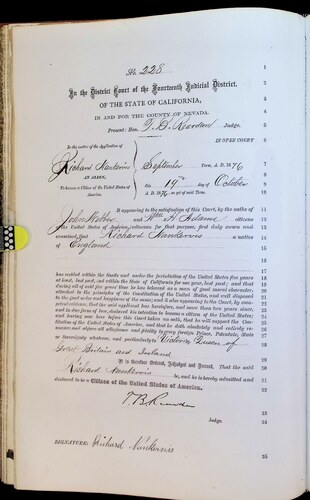 No. 228
In the District Court of the Fourteenth Judicial District,
OF THE STATE OF CALIFORNIA,
IN AND FOR THE COUNTY OF NEVADA.
Present: Hon. T. B. Reardan Judge.
In the matter of the Application of
IN OPEN COURT
Richard Nankervis
September Term, A. D. 1876
AN ALIEN,
To become a Citizen of the United States of America.
this 19th day of October
A. D. 1876 as yet of said Term.
It appearing to the satisfaction of this Court, by the oath of
John Webber and Wm H. Adams citizens
of the United States of America, witnesses for that purpose, first duly sworn and
examined, that Richard Nankervis a native
of England
has resided within the limits and under the jurisdiction of the United States five years
at least, last past, and within the State of California for one year, last past; and that
during all of said five years' time he has behaved as a man of good moral character,
attached to the principles of the Constitution of the United States, and well disposed
to the good order and happiness of the same; and it also appearing to the Court, by competent
evidence, that the said applicant has heretofore, and more than two years since,
and in due form of law, declared his intention to become a citizen of the United States;
and having now here before this Court taken an oath, that he will support the Constitution
of the United States of America, and that he doth absolutely and entirely renounce
and abjure all allegiance and fidelity to every foreign Prince, Potentate, State
or Sovereignty whatever, and particularly to Victoria Queen of
Great Britain and Ireland
It is therefore Ordered, Adjudged and Decreed, That the said
Richard Nankervis be, and he is hereby admitted and
declared to be a Citizen of the United States of America.
T. B. Reardan
Judge.
SIGNATURE: Richard Nankervis